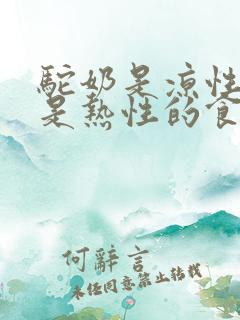 駝奶是涼性
是熱性的食
何辭言
未经同意禁止转载